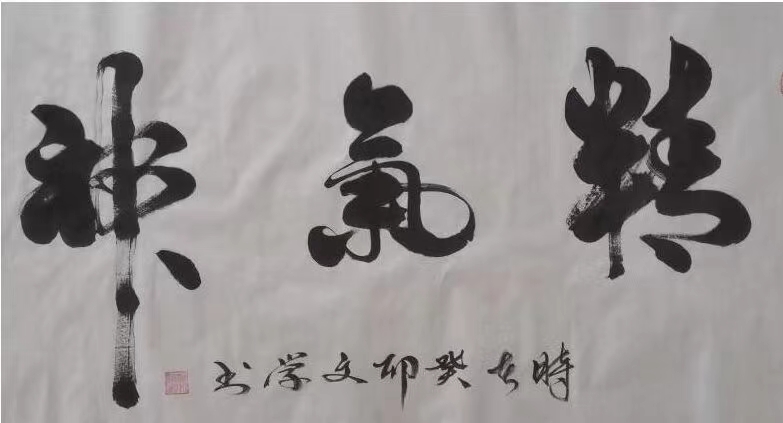 精氣神
時在癸卯文学书